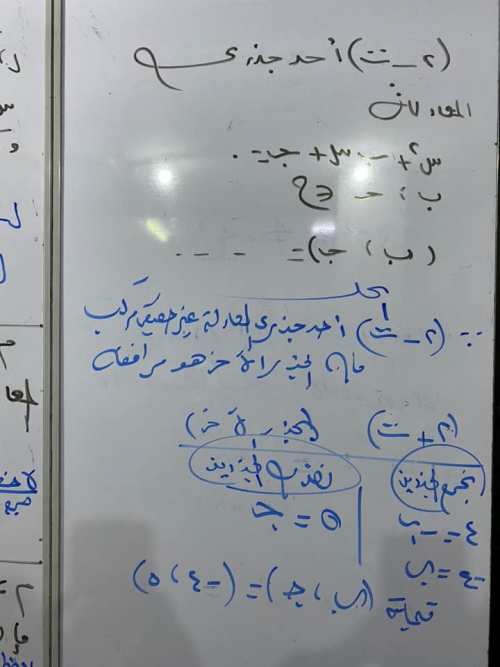 (٢ - ت) أحد جذري
المعادلة
س٢ + ب س + جـ = ٠
ب ، جـ ∈ ح
(ب ، جـ) = - - - -
الحل
∵ (٢ - ت) أحد جذري المعادلة غير حقيقي مركب
فإن الجذر الآخر هو مرافقه
(٢ + ت) (الجذر الآخر)
نجمع الجذرين
نضرب الجذرين
٤ = - ب
٥ = جـ
-٤ = ب
(ب ، جـ) = (-٤ ، ٥)